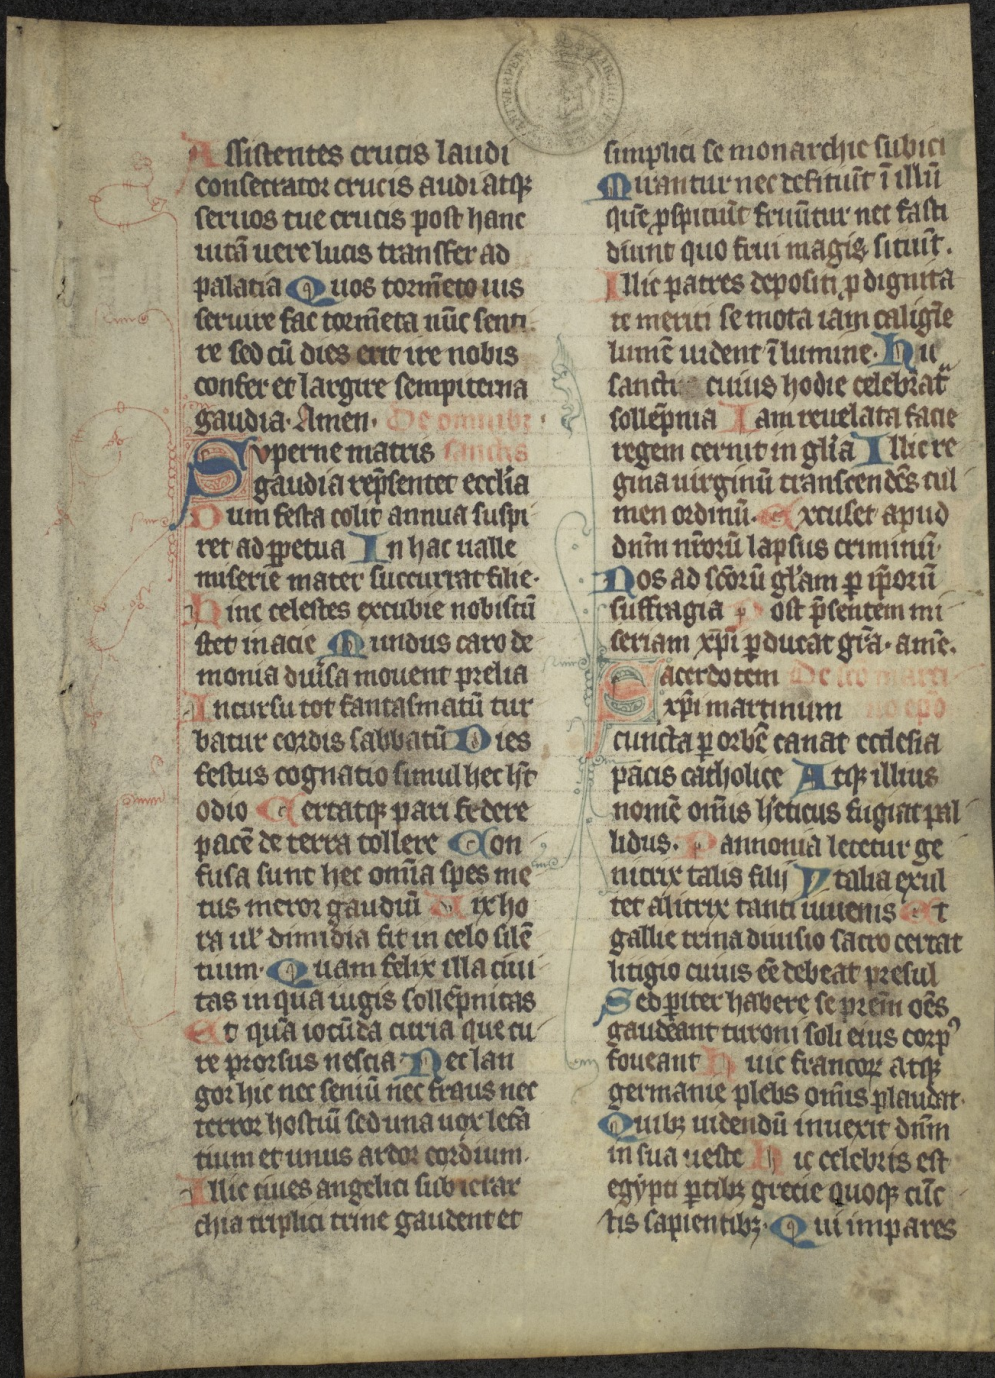 Assistentes crucis laudi
consecrator crucis audi atqꝫ
seruos tue crucis post hanc
uitā uere lucis transfer ad
palatia Quos tormēto uis
seruire fac tormēta nūc senti
re sed cū dies erit ire nobis
confer et largire sempiterna
gaudia· Amen· De omnibꝫ
Superne matris sanctis
gaudia rep̄sentet ecclīa
Dum festa colit annua suspi
ret ad ꝑpetua In hac ualle
miserie mater succurrat filie·
Hinc celestes excubie nobiscū
stet in acie Mundus caro de
monia diuīsa mouent prelia
Incursu tot fantasmatū tur
batur cordis sabbatū Dies
festus cognatio simul hec hn̄t
odio Certatqꝫ pari federe
pacē de terra tollere Con
fusa sunt hec omīa spes me
tus meror gaudiū Vix ho
ra ul' dimidia fit in celo silē
tium· Quam felix illa ciui
tas in qua iugis sollēpnitas
Et quā iocūda curia que cu
re prorsus nescia Nec lan
gor hic nec seniū nec fraus nec
terror hostiū sed una uox letā
tium et unus ardor cordium·
Illic ciues angelici sub ierar
chia triplici trine gaudent et
simplici se monarchie subici
Mirantur nec deficiūt ī illū
quē ꝓspiciūt fruūtur nec fasti
diunt quo frui magis sitiūt·
Illic patres depositi ꝓ dignita
te meriti semota iam caligīe
lumē uident ī lumine· Hii
sancti cuius hodie celebrāt
sollēpnia Iam reuelata facie
regem cernit in glīa Illic re
gina uirginū transcendēs cul
men ordinū· Excuset apud
dnm̄ nr̄orū lapsus criminū·
Nos ad scōrū gl'am ꝑ ip̄orū
suffragia Post p̄sentem mi
seriam xp̄i ꝑducat grā· amē·
Sacerdotem De sco marti
xp̄i martinum no epō
cuncta ꝑ orbē canat ecclesia
pacis catholice Atqꝫ illius
nomē om̄is h'eticus fugiat pal
lidus· Pannonia letetur ge
nitrix talis filij Ytalia exul
tet alitrix tanti iuuenis Et
gallie trina diuisio sacro certat
litigio cuius eē debeat presul
Sed ꝑiter habere se prēm oēs
gaudeant turoni soli eius corpꝰ
foueant Huic francoꝝ atqꝫ
germanie plebs om̄is plaudat·
Quibꝫ uidendū inuexit dnm̄
in sua ueste Hic celebris est
egypti ꝑtibꝫ grecie quoqꝫ cūc
tis sapientibꝫ· Qui impares